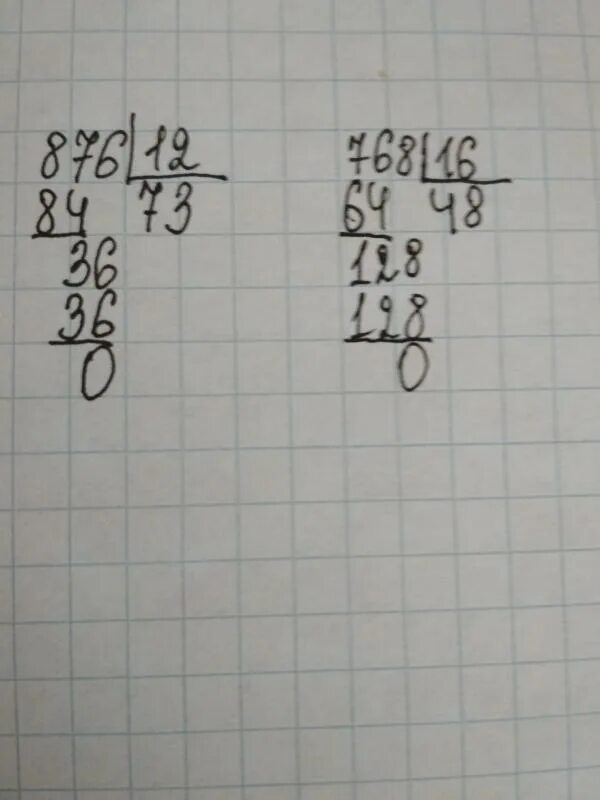 876 12
84 73
36
36
0
768 16
64 48
128
128
0